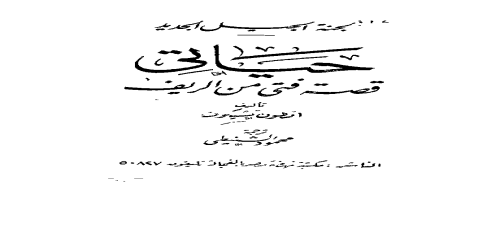 لجنة الجيل الجديد
حياتي
قصة فتى من الريف
تأليف
انطون تشيهوف
ترجمة
محمود الشنيطي
الناشر : مكتبة نهضة مصر بالفجالة تليفون ٥٠٨٢٧